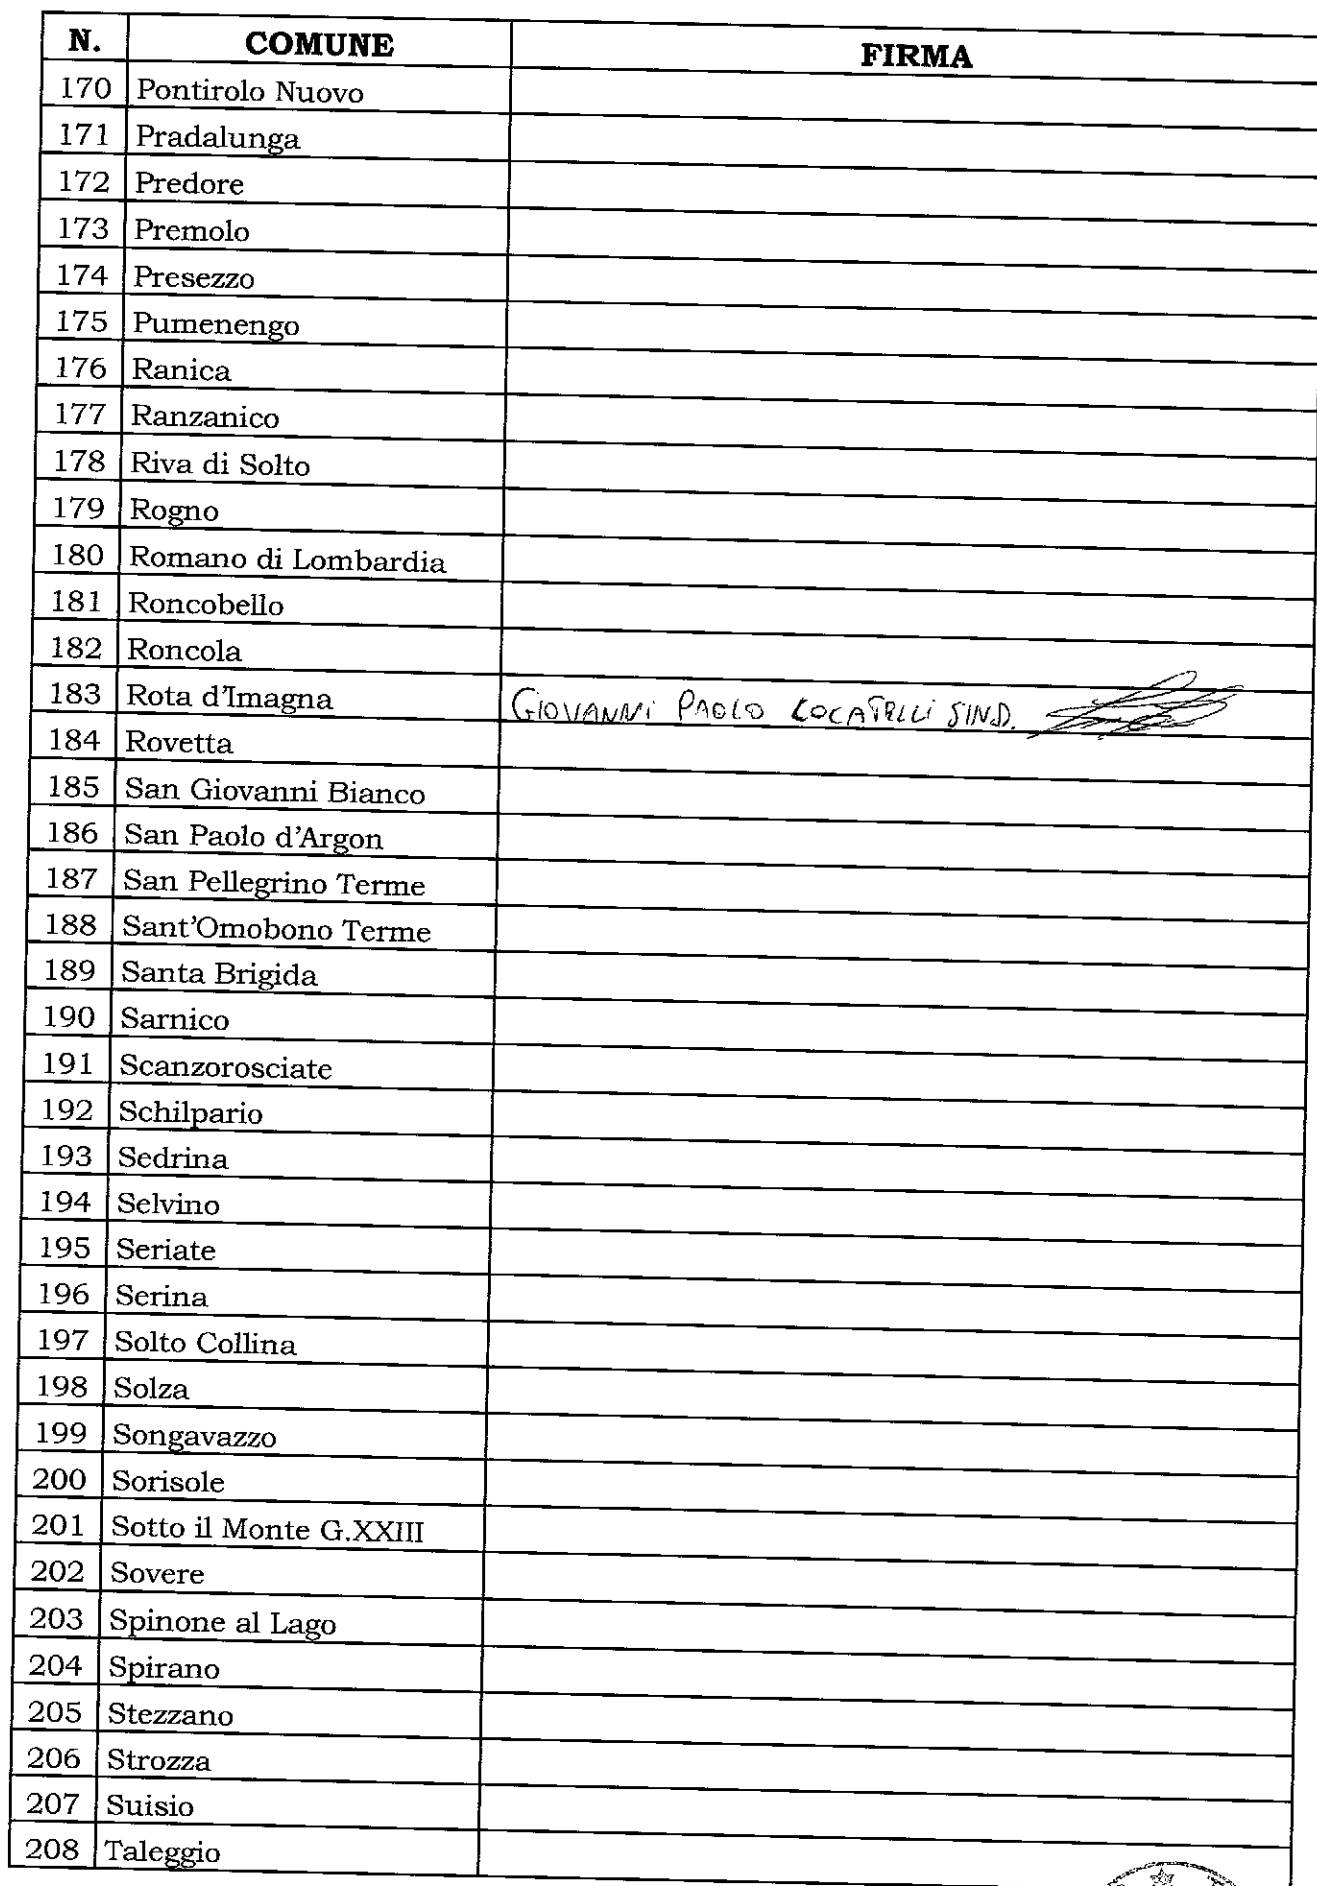 N. COMUNE FIRMA
170 Pontirolo Nuovo
171 Pradalunga
172 Predore
173 Premolo
174 Presezzo
175 Pumenengo
176 Ranica
177 Ranzanico
178 Riva di Solto
179 Rogno
180 Romano di Lombardia
181 Roncobello
182 Roncola
183 Rota d'Imagna GIOVANNI PAOLO LOCATELLI SIND.
184 Rovetta
185 San Giovanni Bianco
186 San Paolo d'Argon
187 San Pellegrino Terme
188 Sant'Omobono Terme
189 Santa Brigida
190 Sarnico
191 Scanzorosciate
192 Schilpario
193 Sedrina
194 Selvino
195 Seriate
196 Serina
197 Solto Collina
198 Solza
199 Songavazzo
200 Sorisole
201 Sotto il Monte G.XXIII
202 Sovere
203 Spinone al Lago
204 Spirano
205 Stezzano
206 Strozza
207 Suisio
208 Taleggio